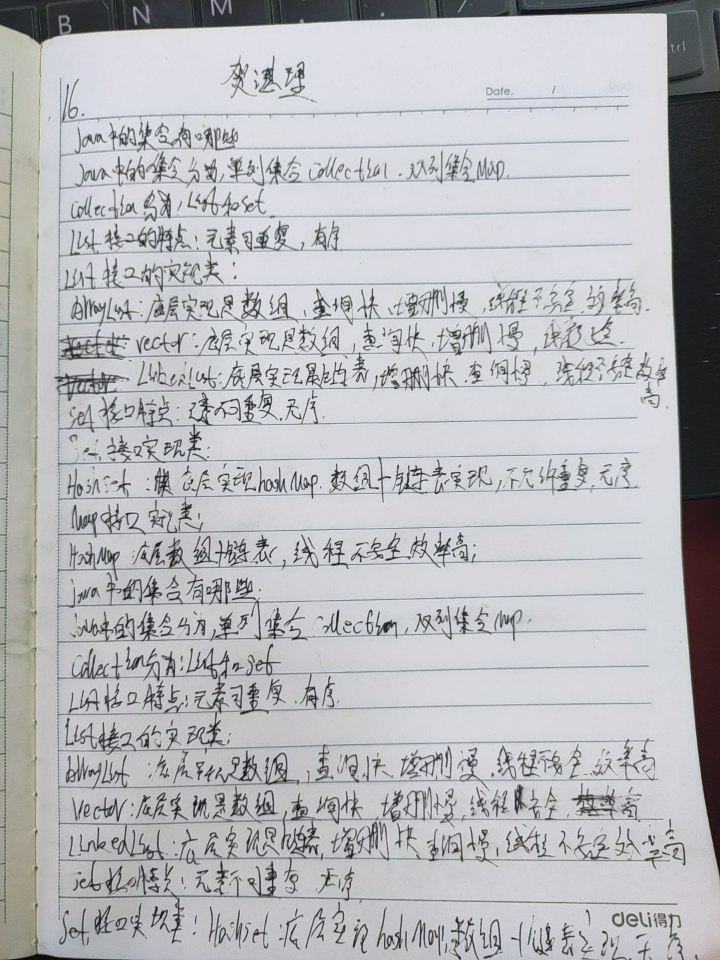 贺湛理
Date. /
16.
java中的集合有哪些
java中的集合分为,单列集合Collection. 双列集合Map.
Collection分为,List和set.
List接口的特点:元素可重复,有序
List接口的实现类:
ArrayList:底层实现是数组,查询快,增删慢,线程不安全.效率高.
vector:底层实现是数组,查询快,增删慢,线程安全.
LinkedList:底层实现是链表,增删快.查询慢,线程不安全效率高.
Set接口特点:元素不可重复.无序.
Set接口实现类:
HashSet:底层实现hashMap.数组+链表实现,不允许重复,无序.
Map接口实现类;
HashMap:底层数组+链表,线程不安全.效率高;
java中的集合有哪些.
java中的集合分为,单列集合Collection,双列集合Map.
Collection分为:List和set
List接口特点:元素可重复.有序.
List接口的实现类;
ArrayList:底层实现是数组,查询快.增删慢.线程不安全.效率高
Vector:底层实现是数组,查询快 增删慢,线程安全.
LinkedList:底层实现是链表,增删快.查询慢,线程不安全效率高
set接口特点:元素不可重复 无序
Set,接口实现类:HashSet:底层实现hashMap,数组+链表实现.无序.
deli得力
B N M
ctrl